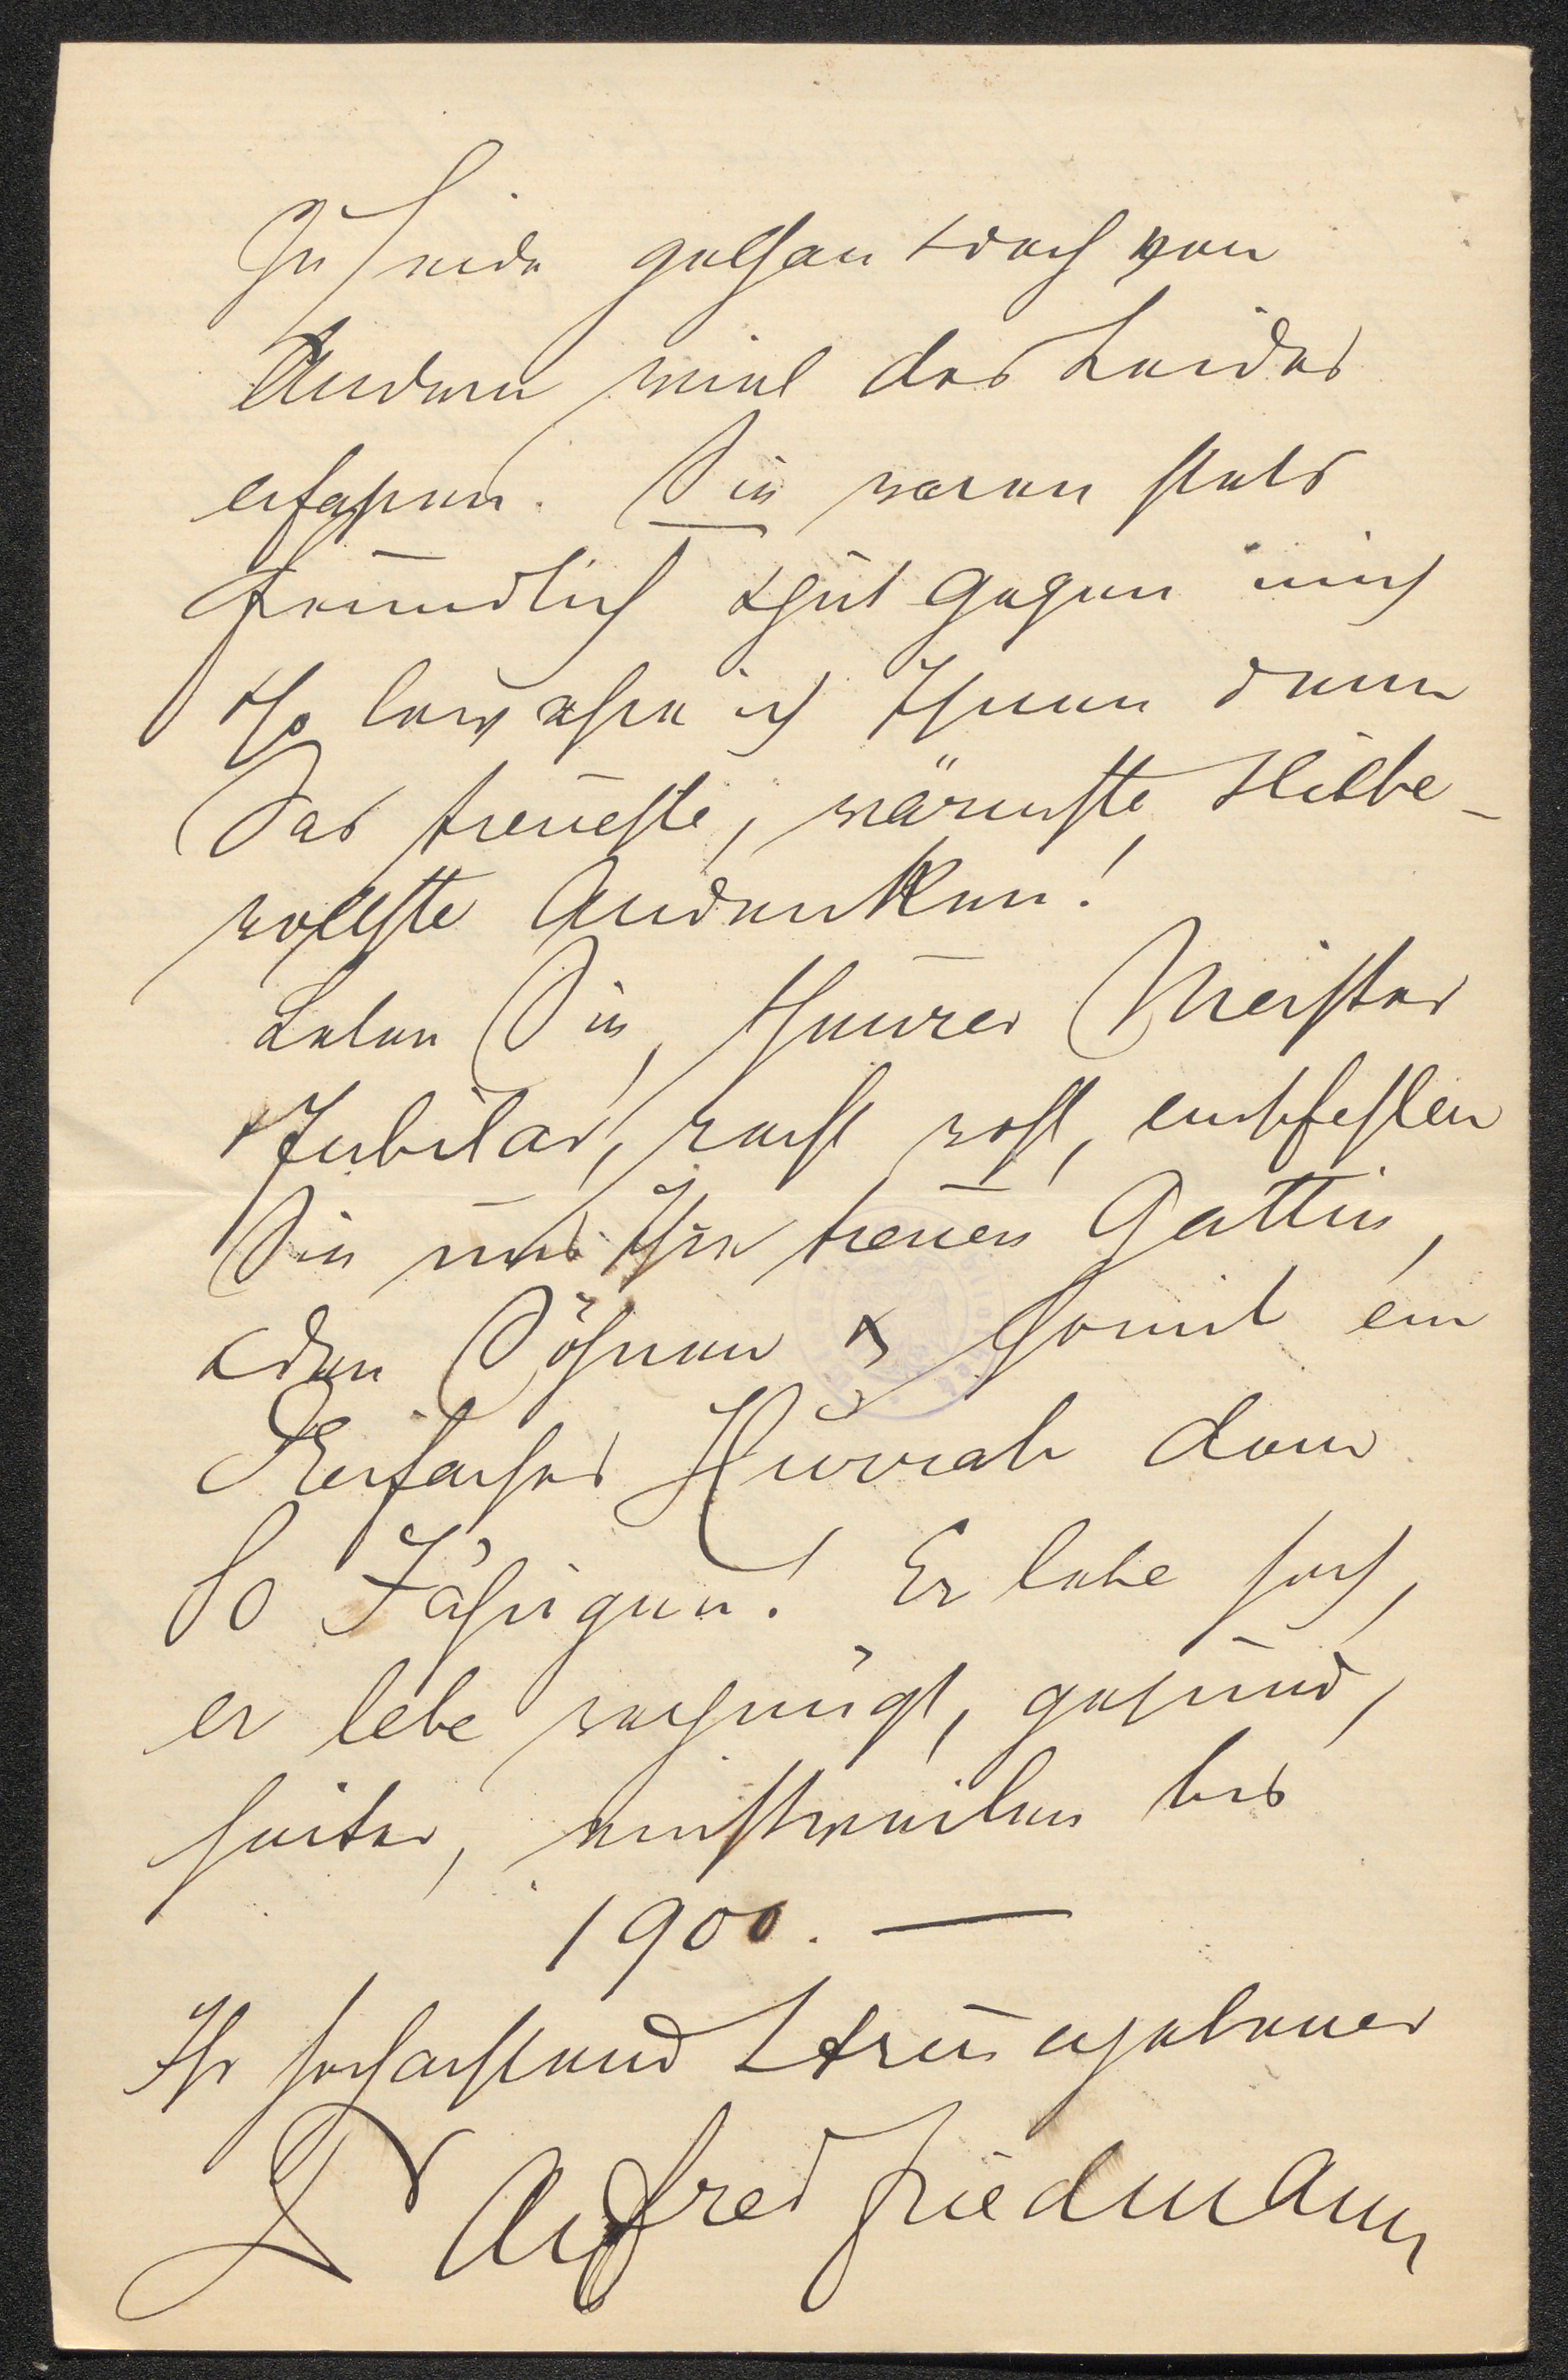 zu Leide gethan & doch von
Andern viel des Leides
erfahren. Sie waren stets
freundlich & gut gegen mich
& so bewahre ich Ihnen denn
Das treueste, wärmste & liebe-
vollste Andenken!
Leben Sie, theurer Meister
& Jubilar, recht wohl, empfehlen
Sie mich Ihrer treuen Gattin,
& den Söhnen & somit ein
Hurrah dem
60 Jährigen! Er lebe hoch,
er lebe vergnügt, gesund,
heiter, einstweilen bis
1900. —
Ihr hochachtend & treu ergebener
Dr Alfred Friedmann